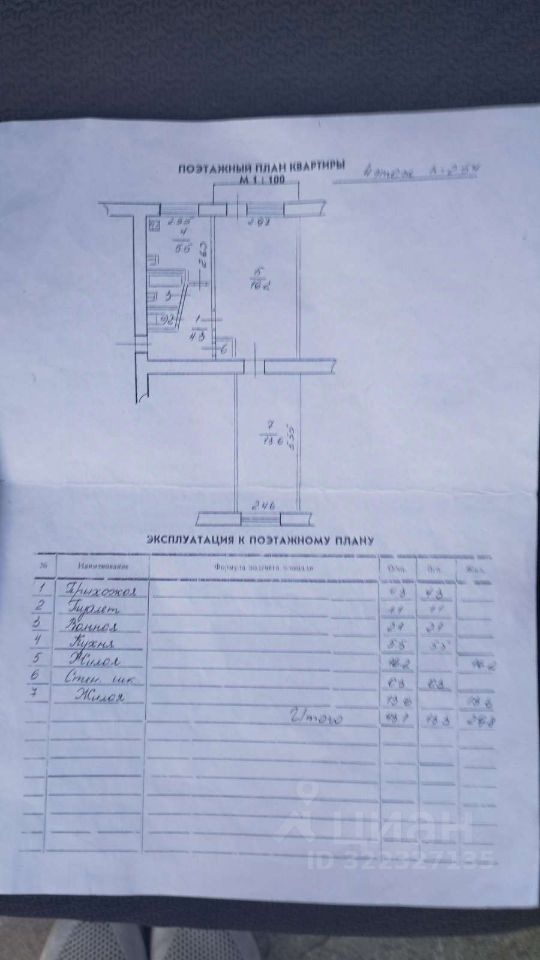 ПОЭТАЖНЫЙ ПЛАН КВАРТИРЫ
М 1 : 100
4 этаж h=254
4
5.5
263
5
16.2
3
1
4.3
6
7
13.6
555
246
ЭКСПЛУАТАЦИЯ К ПОЭТАЖНОМУ ПЛАНУ
№ Наименование Формула подсчета площади Общ. Жил.
1 Прихожая 4.3 4.3
2 Туалет
3 Ванная
4 Кухня 5.5 5.5
5 Жилая 16.2 16.2
6 Стен. шк.
7 Жилая 13.6 13.6
Итого 29.8
ЦИАН
ID 322327135